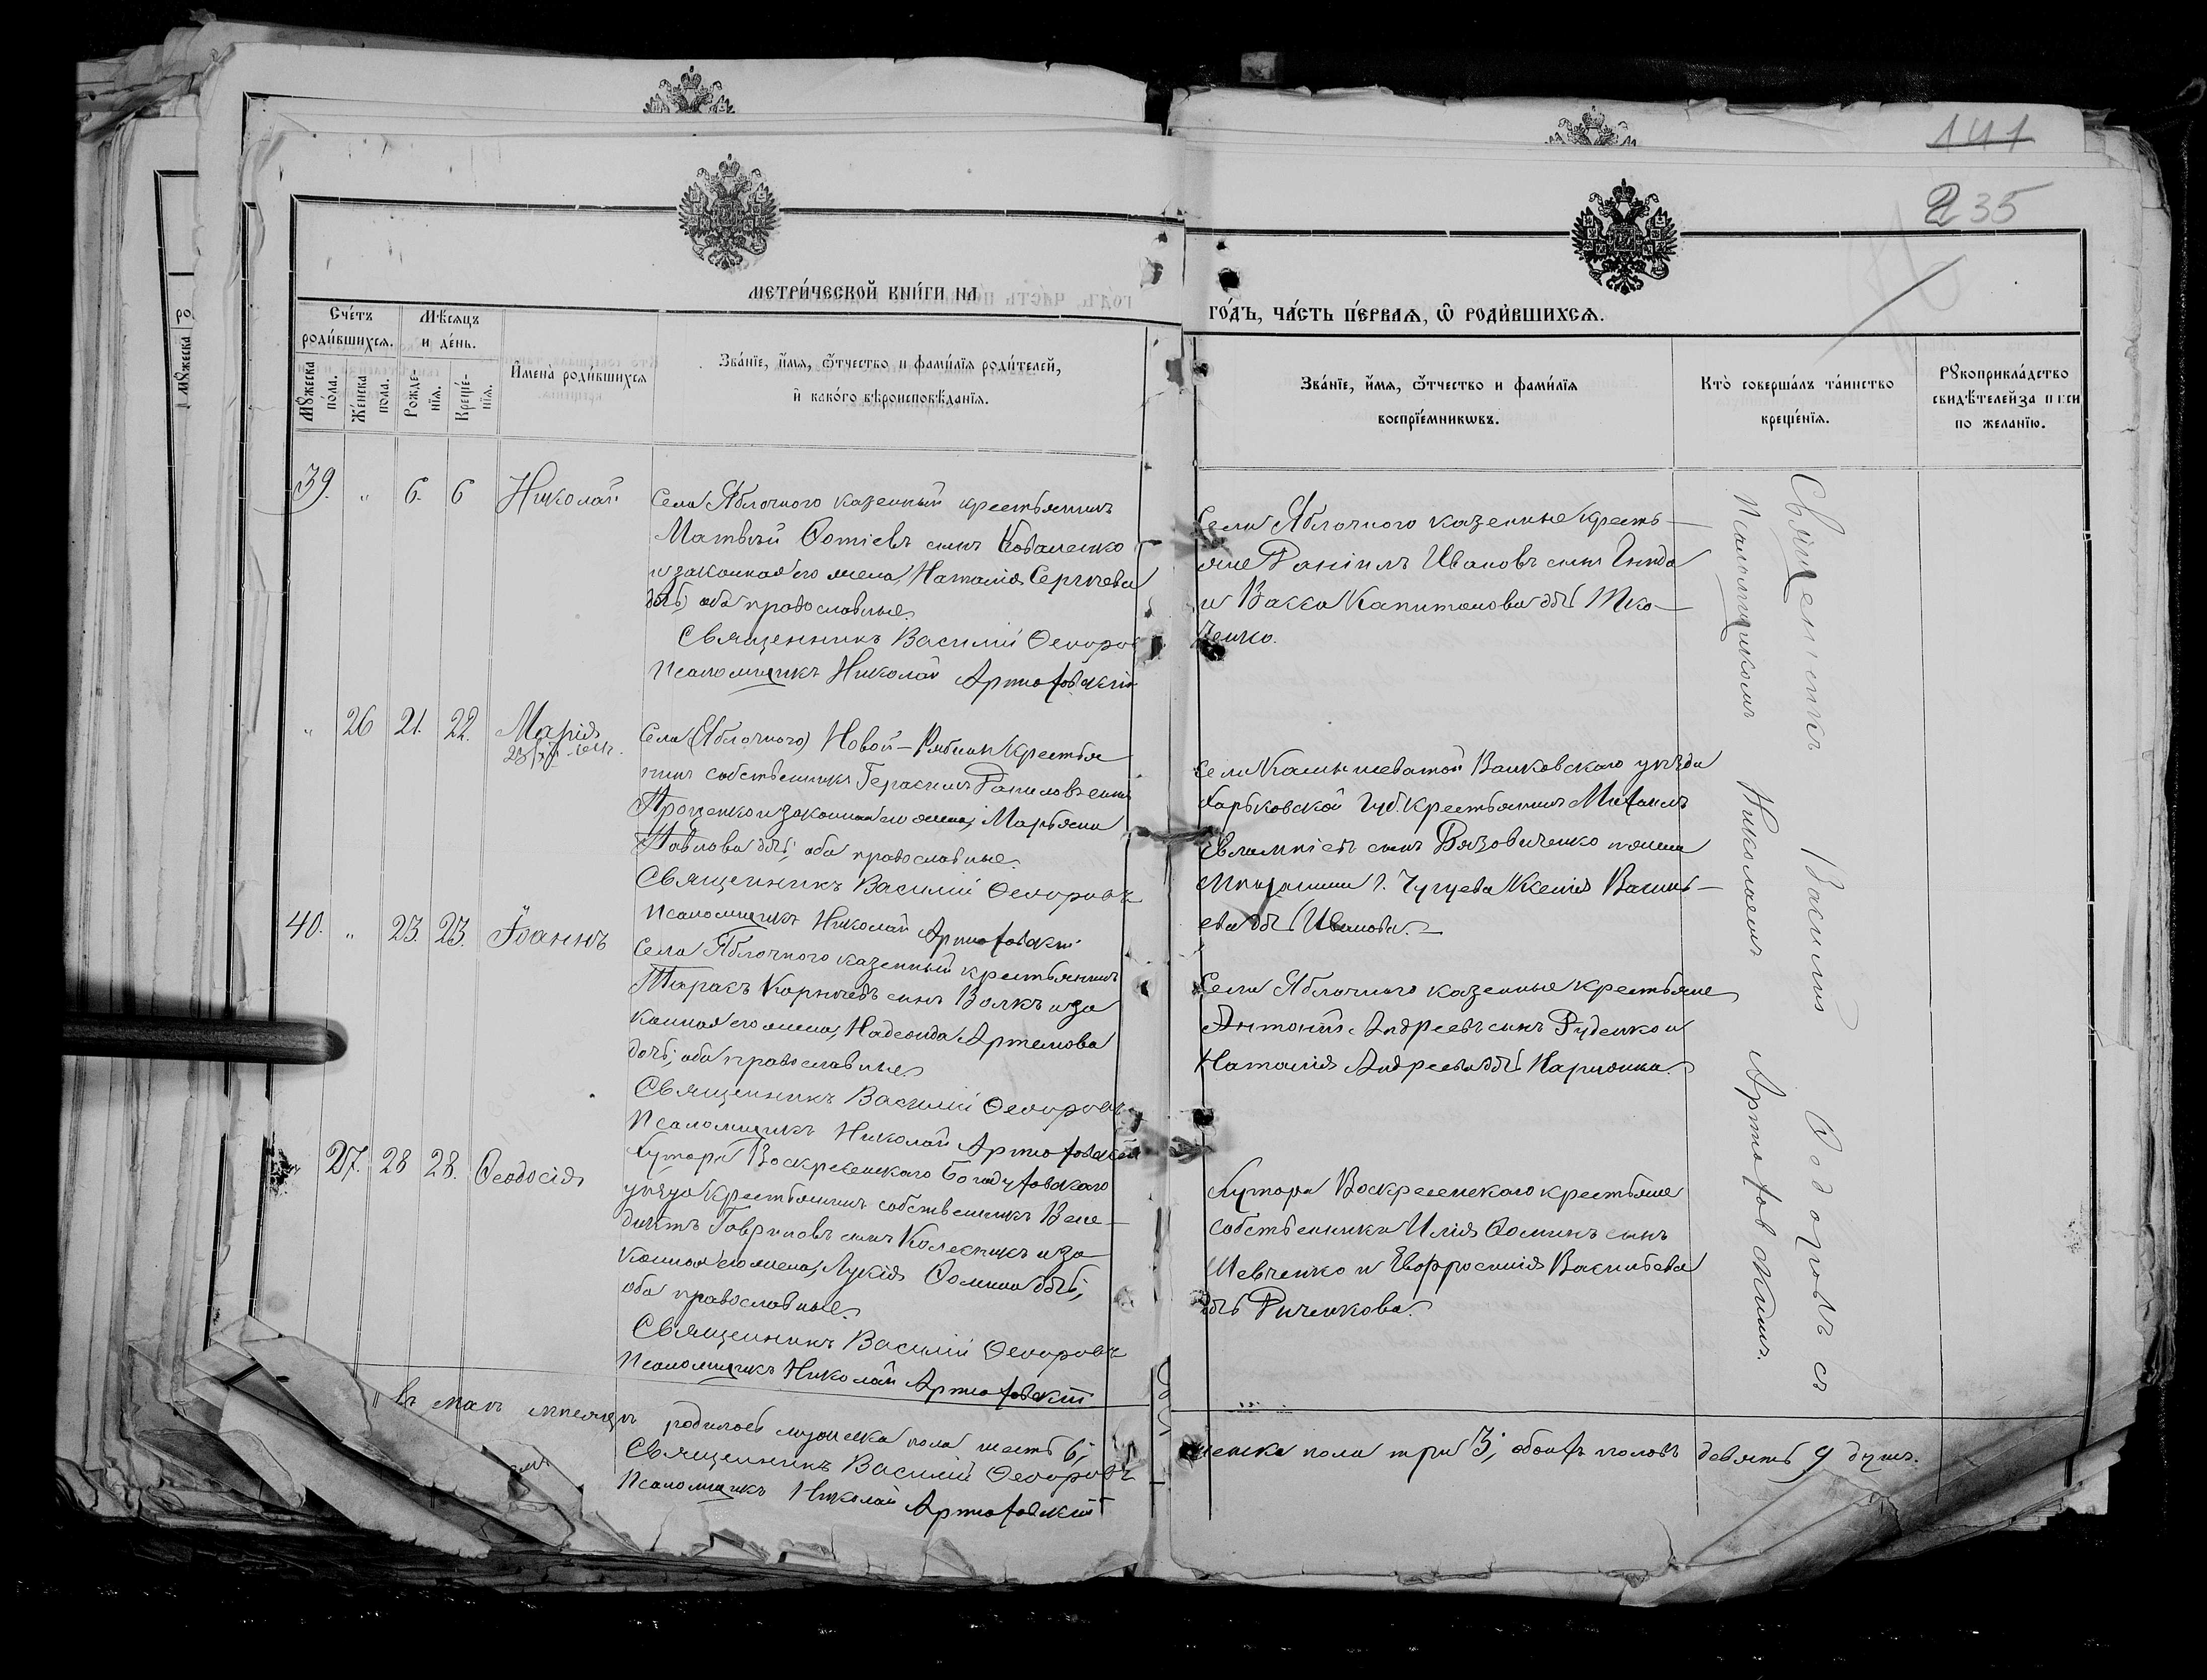 141
235
МЕТРИ́ЧЕСКОЙ КНИ́ГИ НА
ГО́ДЪ, ЧА́СТЬ ПЕ́РВАѦ, Ѿ РОДИ́ВШИХСѦ.
Сче́тъ
роди́вшихсѧ.
Мѣ́сѧцъ
и де́нь.
Мꙋ́жеска
по́ла.
Же́нска
пола.
Рожде-
нїѧ.
Креще́-
нїѧ.
И҆мена̀ роди́вшихсѧ
Зва́нїе, и҆́мѧ, ѻ҆́тчество и фами́лїѧ роди́телей,
и҆ како́гѡ вѣроисповѣ́данїѧ.
Зва́нїе, и҆́мѧ, ѻ҆́тчество и фами́лїѧ
воспрїе́мникѡвъ.
Кто̀ соверша́лъ та́инство
креще́нїѧ.
Рꙋкоприкла́дство
свидѣ́телей за
по жела́нїю.
39. " 6. 6 Николай
Села Яблочного казенный крестьянинъ
Матвѣй Фотіевъ сынъ Коваленко
и законная его жена, Наталія Сергѣева
дчь; оба православные.
Священникъ Василій Ѳедоровъ
Псаломщикъ Николай Артюховскій
Села Яблочного казенные кресть-
яне Даніилъ Ивановъ сынъ
и Васса Капитонова дчь Тка-
ченко.
" 26 21. 22. Марія
Села (Яблочного) Новой-Рябины Крестья
нинъ собственникъ Герасимъ Даниловъ сынъ
Проценко и законная его жена, Марѳяна
Павлова дчь; оба православные.
Священникъ Василій Ѳедоровъ
Псаломщикъ Николай Артюховскій
Села Камышеватой Валковского уѣзда
Харьковской Губ. Крестьянинъ Михаилъ
Евлампіевъ сынъ Вязовиченко и жена
Мѣщанина г. Чугуева Ксенія Василь-
ева дчь Иванова.
40. " 23. 23. Іоаннъ
Села Яблочного казенный крестьянинъ
Тарасъ Корнѣевъ сынъ Волкъ и за
конная его жена, Надежда Артемова
дочь; оба православные
Священникъ Василій Ѳедоровъ
Псаломщикъ Николай Артюховскій
Села Яблочного казенные крестьяне
Антоній Андреевъ сынъ Руденко и
Наталія Андреева дчь
27. 28 28. Ѳеодосія
Хутора Воскресенского Богодуховского
уѣзда Крестьянинъ собственникъ Вене-
диктъ Гавриловъ сынъ Колесникъ и за
конная его жена, Лукія Ѳомина дчь;
оба православные.
Священникъ Василій Ѳедоровъ
Псаломщикъ Николай Артюховскій
Хутора Воскресенского крестьяне
собственники Илія Ѳоминъ сынъ
Шевченко и Евфросинія Васильева
дчь Риченкова.
Священникъ Василій Ѳедоровъ съ
Псаломщикомъ Николаемъ Артюховскимъ.
въ маѣ мѣсяцѣ родилось мужеска пола шесть 6;
женска пола три 3; обоихъ половъ девять 9 душъ.
Священникъ Василій Ѳедоровъ
Псаломщикъ Николай Артюховскій